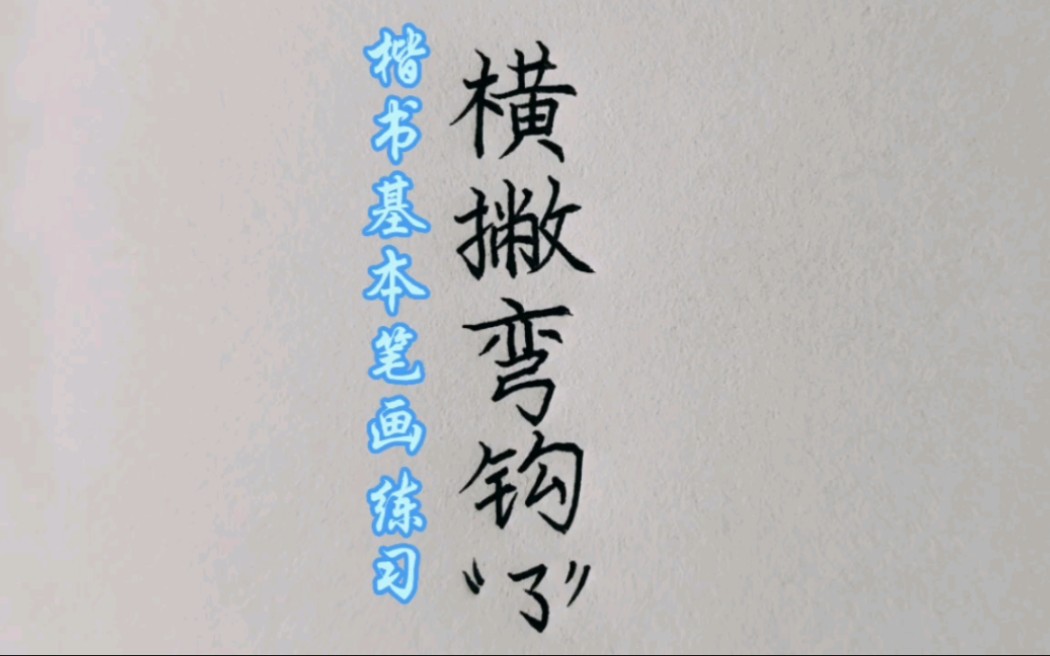 楷书基本笔画练习
横撇弯钩
“㇌”